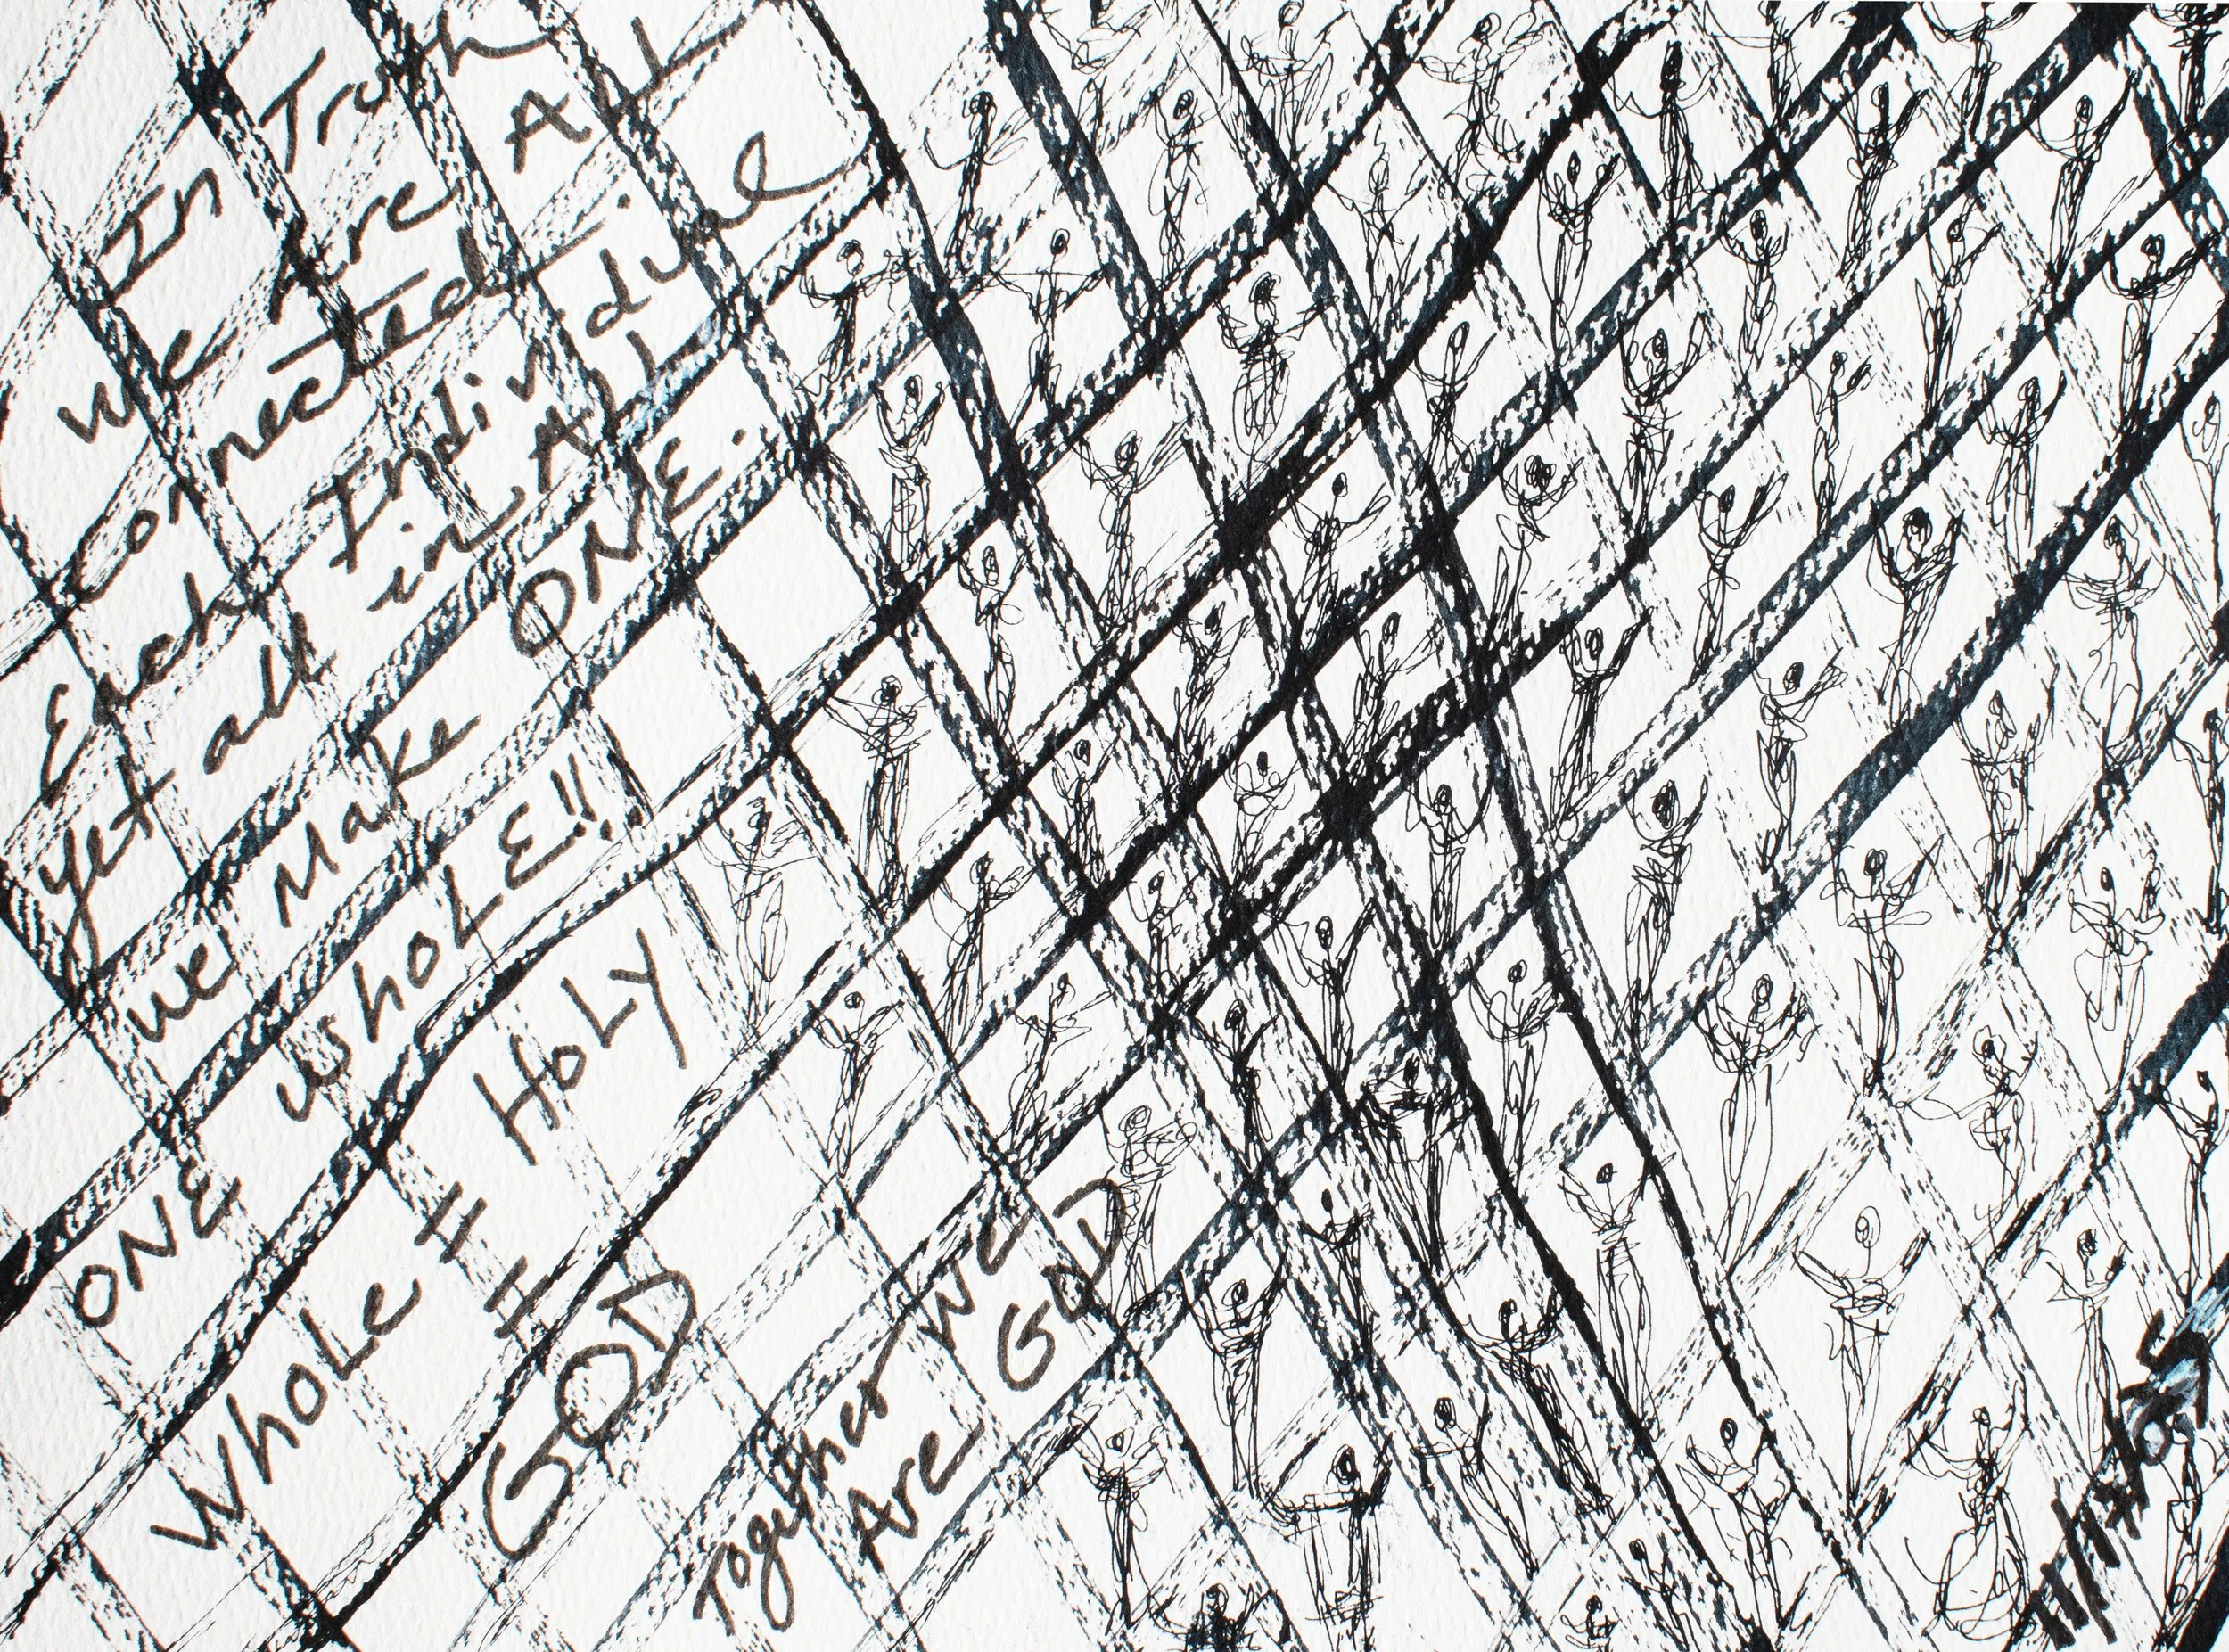 In Truth
We Are ALL
connected.
Each Individual
yet all in ALL
we Make ONE.
ONE whoLE!!
WhoLe = HoLY
= GOD
Together WE
Are GOD